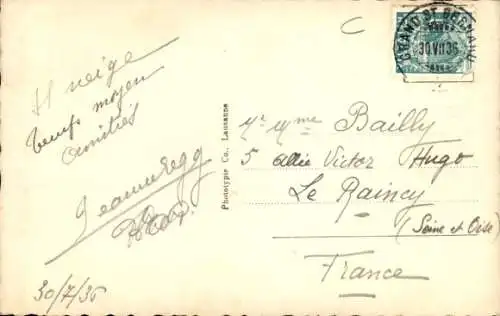 Il neige
temps moyen
Amitiés
30/7/36
Phototypie Co., Lausanne
C
GRAND ST BERNARD
30.VII.36
Mr Mme Bailly
5 allée Victor Hugo
Le Raincy
(Seine et Oise)
France